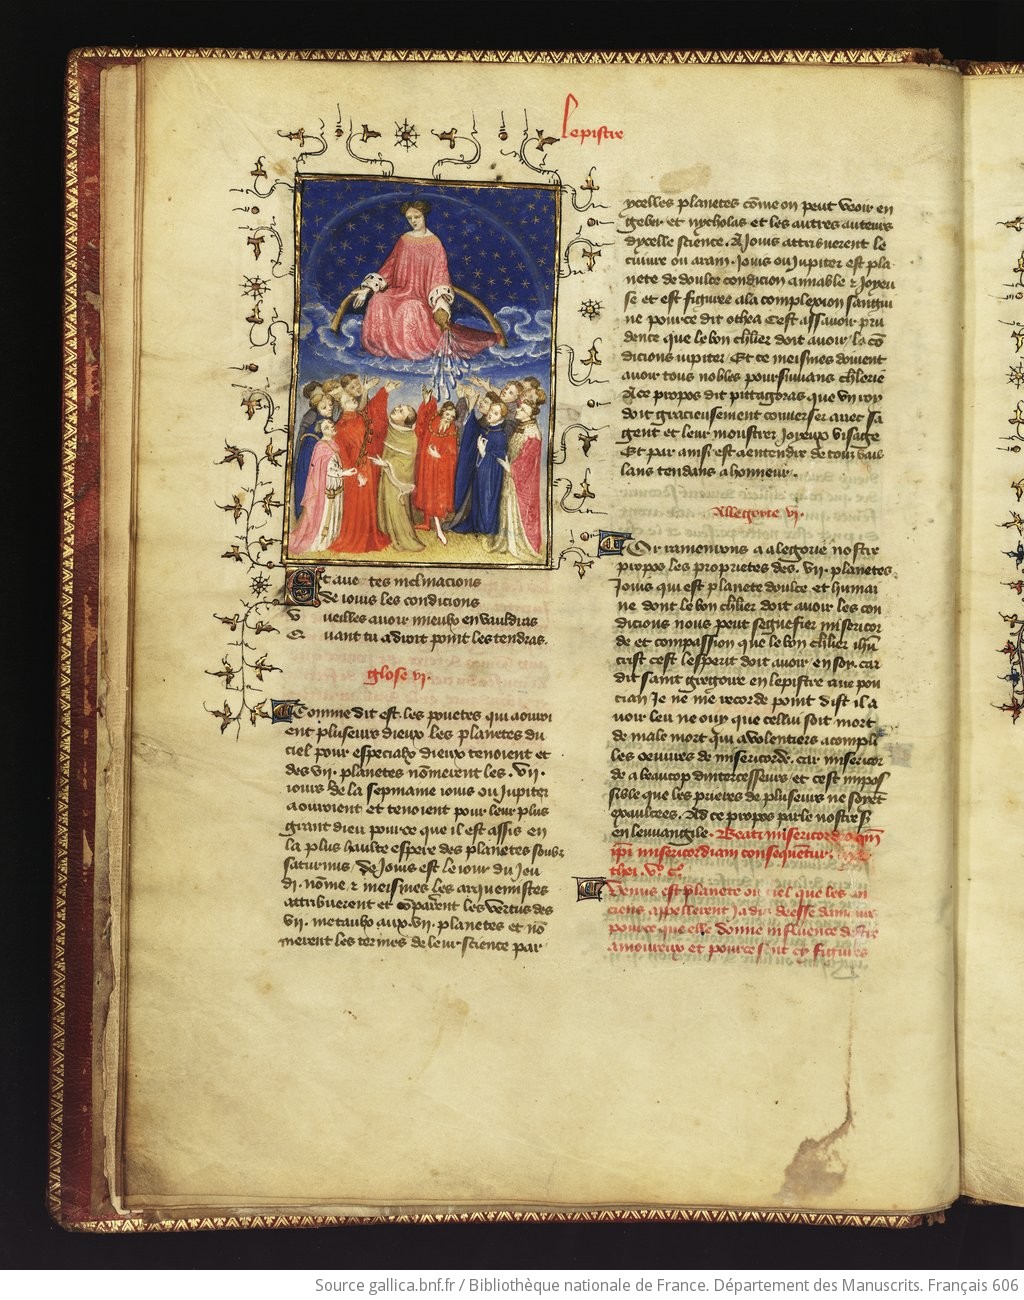 Lepistre
Et avec tes inclinacions
De iouis les condicions
Vueilles auoir mieulx en vauldras
Quant tu a droit point les tendras.
glose vi.
Comme dit est. les pouetes qui aouroi
ent pluseurs dieux les planetes du
ciel pour especialx dieux tenoient et
des vii. planetes nōmerent les .vii.
iours de la sepmaine iouis ou iupiter
aouroient et tenoient pour leur plus
grant dieu pource que il est assis en
la plus haulte espere des planetes soubz
saturnus. De Iouis est le iour du Jeu
di. nōme. & meismes les arquemistes
attribuerent et cōparent les vertus des
vii. metaulx aux .vii. planetes et nō
merent les termes de leur science par
ycelles planetes cōme on peut veoir en
geber et nycholas et les autres auteurs
dycelle science. A Jouis attribuerent le
cuiure ou aram. Jouis ou Jupiter est pla
nete de doulce condicion amiable & Joyeu
se et est figuree a la complexion sangui
ne pource dit othea Cest assauoir pru
dence que le bon chlier doit auoir la cō
dicions iupiter Et ce meismes doiuent
auoir tous nobles poursuiuans chlerie
A ce propos dit pittagoras que vn roy
doit gracieusement conuerser auec sa
gent et leur moustrer Joyeux visage
Et par ainsi est a entendre de touz vail
lans tendans a honneur.
Allegorie vi.
Or ramenions a alegorie nostre
propos les proprietes des .vii. planetes
Jouis qui est planete doulce et humai
ne dont le bon chlier doit auoir les con
dicions nous peut segnefier misericor
de et compassion que le bon chlier ihū
crist cest lesperit doit auoir en soy. car
dit saint gregoire en lepistre a nepou
cian Je ne me recorde point dist il a
uoir leu ne ouy que cellui soit mort
de male mort qui a volentiers acompli
les oeuures de misericorde. car misericor
de a beaucop dintercesseurs et cest impos
sible que les prieres de pluseurs ne soyēt
exaulcees. A ce propos parle nostre s
en leuuangile. Beati misericordes qm̄
ipi misericordiam consequentur.
thei .v. c.
Venus est planete ou ciel que les an
ciens appellerent Jadis deesse damour
pource que elle donne influence destre
amoureux et pource sont cy figures
Source gallica.bnf.fr / Bibliothèque nationale de France. Département des Manuscrits. Français 606